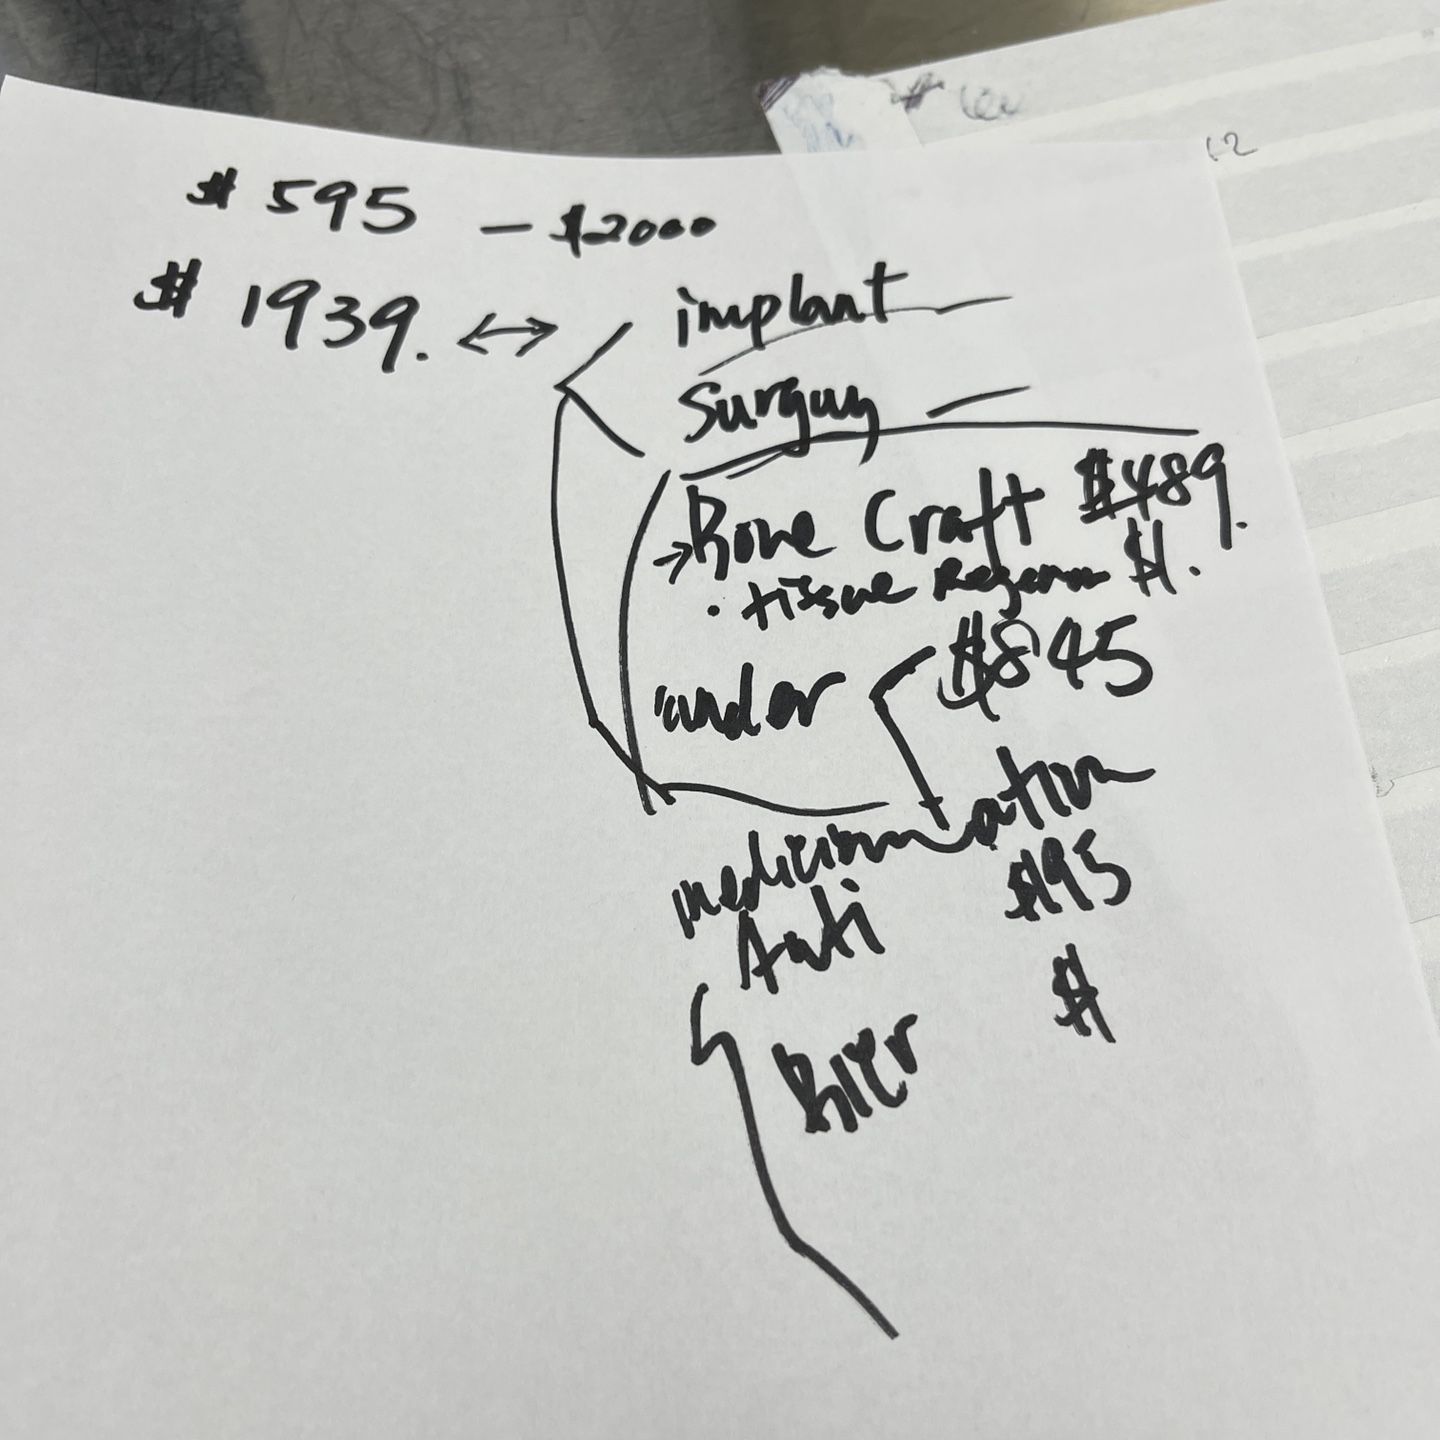 $ 595 — $2000
$ 1939. ↔ implant —
Surguy —
→ Bone Craft $489.
. tissue Regenra $1.
under $845
medicination
Anti $195
$